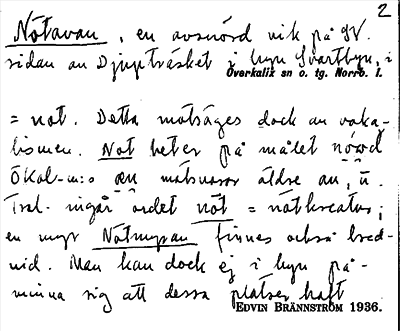 2
Nötavan, en avsnörd vik på SV.
sidan av Djupträsket i byn Svartbyn, i
Överkalix sn o. tg. Norrb. l.
= not. Detta motsäges dock av voka-
lismen. Not heter på målet
Ökal-m:s motsvarar äldre au, ü.
Trol. ingår ordet nöt = nötkreatur;
en myr Nötmyran finnes också bred-
vid. Man kan dock ej i byn på-
minna sig att dessa platser haft
EDVIN BRÄNNSTRÖM 1936.